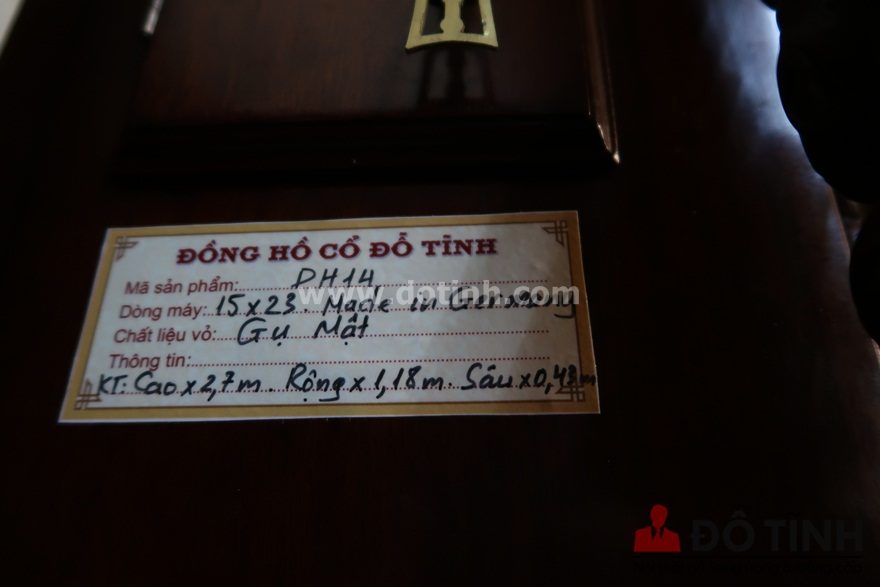 ĐỒNG HỒ CỔ ĐỖ TÌNH
Mã sản phẩm: DH14
www.dotinh.com
Dòng máy: 15x23. Made in Germany
Chất liệu vỏ: Gụ Mật
Thông tin:
KT: Cao x 2,7m. Rộng x 1,18m. Sâu x 0,43m
ĐỖ TÌNH